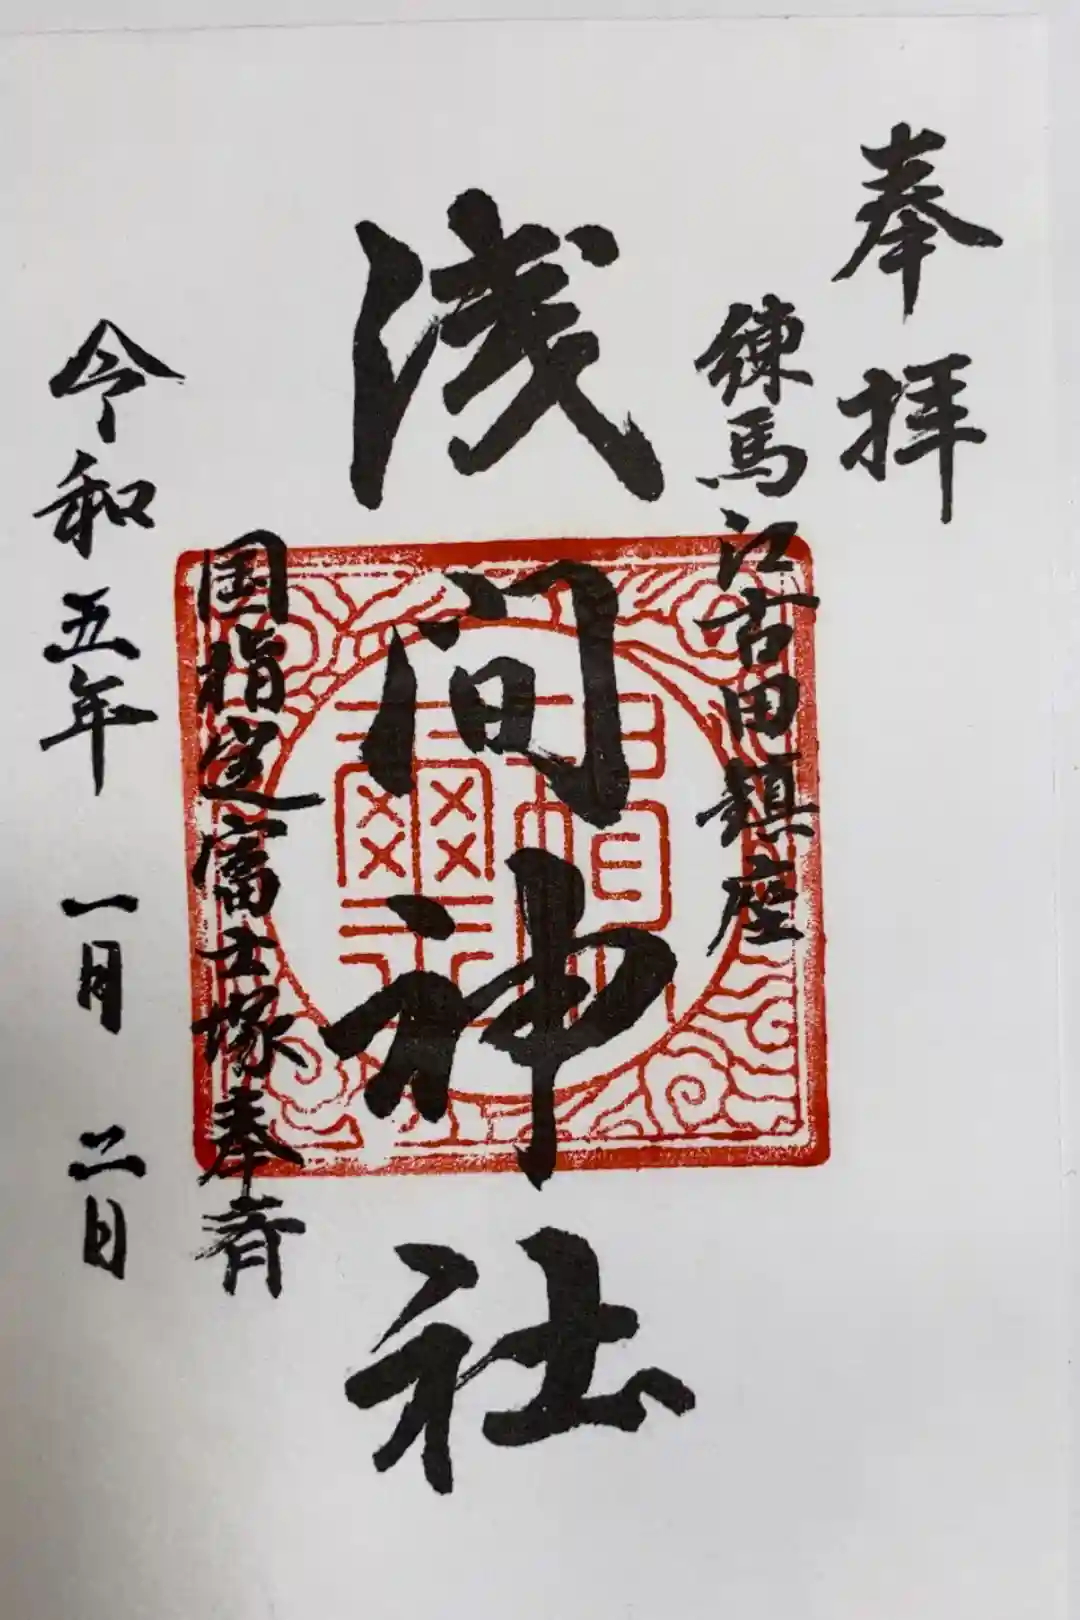 奉拝
練馬江古田鎮座
浅间神社
国指定富士塚奉斉
令和五年一月二日